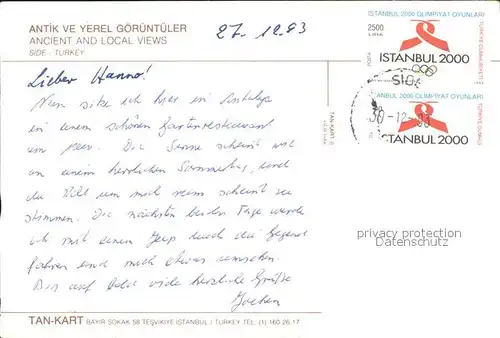 ANTİK VE YEREL GÖRÜNTÜLER
ANCIENT AND LOCAL VIEWS
SIDE - TURKEY
27.12.93
Lieber Hanno!
Nun sitze ich hier in Antalya
in einem schönen Gartenrestaurant
am Meer. Die Sonne scheint wie
an einem herrlichen Sommertag, und
die Welt um mich rum scheint zu
stimmen. Die nächsten beiden Tage werde
ich mit einem Jeep durch die Gegend
fahren und mich etwas umsehen.
Bis auf bald viele herzliche Grüße
Jochen
TAN-KART BAYIR SOKAK 58 TEŞVİKİYE İSTANBUL / TURKEY TEL (1) 160 26 17
TAN-KART
İSTANBUL 2000 OLİMPİYAT OYUNLARI
2500
LİRA
POSTA
TÜRKİYE CUMHURİYETİ
İSTANBUL 2000
SIDE
İSTANBUL 2000 OLİMPİYAT OYUNLARI
30-12-93
İSTANBUL 2000
privacy protection
Datenschutz